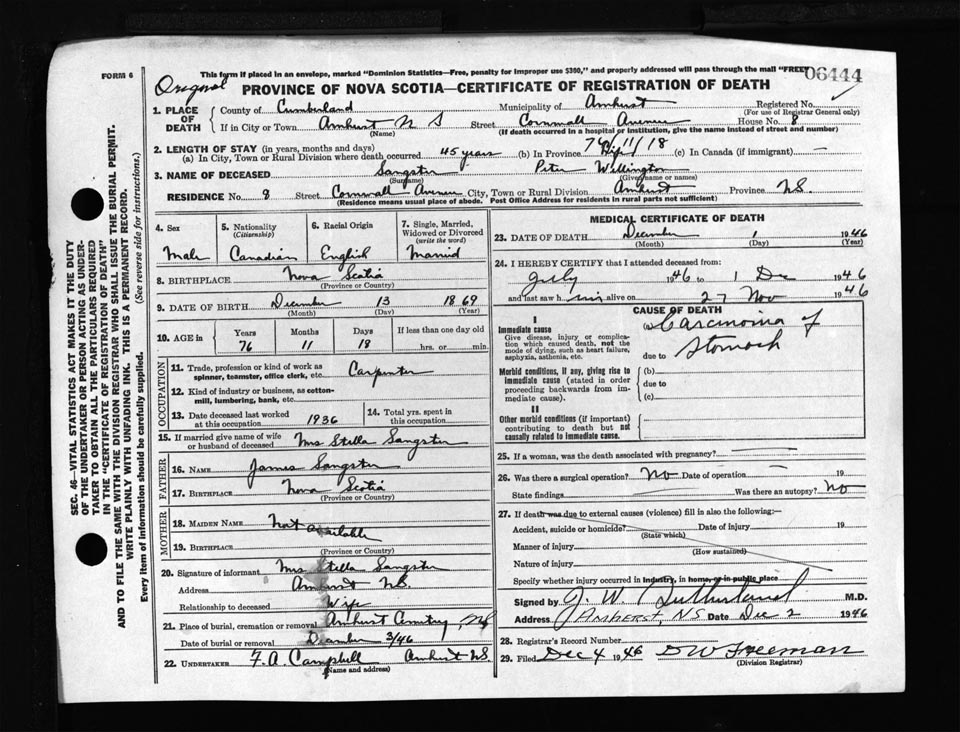 FORM 6
This form if placed in an envelope, marked "Dominion Statistics—Free, penalty for improper use $300," and properly addressed will pass through the mail "FREE"
06444
Original
PROVINCE OF NOVA SCOTIA—CERTIFICATE OF REGISTRATION OF DEATH
1. PLACE OF DEATH County of Cumberland Municipality of Amherst Registered No.
(For use of Registrar General only)
If in City or Town Amherst N S Street Cornwall Avenue House No. 8
(Name) (If death occurred in a hospital or institution, give the name instead of street and number)
2. LENGTH OF STAY (in years, months and days) 76/11/18
(a) In City, Town or Rural Division where death occurred 45 years (b) In Province Life (c) In Canada (if immigrant) —
3. NAME OF DECEASED Sangster Peter Wellington
(Surname) (Given name or names)
RESIDENCE No. 8 Street Cornwall Avenue City, Town or Rural Division Amherst Province NS
(Residence means usual place of abode. Post Office Address for residents in rural parts not sufficient)
4. Sex 5. Nationality (Citizenship) 6. Racial Origin 7. Single, Married, Widowed or Divorced (write the word)
Male Canadian English Married
8. BIRTHPLACE Nova Scotia
(Province or Country)
9. DATE OF BIRTH December 13 1869
(Month) (Day) (Year)
10. AGE in Years Months Days If less than one day old
76 11 18 hrs. or min.
OCCUPATION
11. Trade, profession or kind of work as spinner, teamster, office clerk, etc. Carpenter
12. Kind of industry or business, as cotton-mill, lumbering, bank, etc.
13. Date deceased last worked at this occupation 1936 14. Total yrs. spent in this occupation
15. If married give name of wife or husband of deceased Mrs Stella Sangster
FATHER
16. NAME James Sangster
17. BIRTHPLACE Nova Scotia
(Province or Country)
MOTHER
18. MAIDEN NAME Not available
19. BIRTHPLACE
(Province or Country)
20. Signature of informant Mrs Stella Sangster
Address Amherst NS.
Relationship to deceased Wife
21. Place of burial, cremation or removal Amherst Cemetery, NS
Date of burial or removal December 3/46
22. UNDERTAKER F. A. Campbell Amherst NS.
(Name and address)
MEDICAL CERTIFICATE OF DEATH
23. DATE OF DEATH December 1 1946
(Month) (Day) (Year)
24. I HEREBY CERTIFY that I attended deceased from:
July 1946 to 1 Dec 1946
and last saw him alive on 27 Nov 1946
CAUSE OF DEATH
I
Immediate cause
Give disease, injury or complication which caused death, not the mode of dying, such as heart failure, asphyxia, asthenia, etc.
(a) Carcinoma of
due to Stomach
Morbid conditions, if any, giving rise to immediate cause (stated in order proceeding backwards from immediate cause).
(b)
due to
(c)
II
Other morbid conditions (if important) contributing to death but not causally related to immediate cause.
25. If a woman, was the death associated with pregnancy? —
26. Was there a surgical operation? No Date of operation — 19
State findings Was there an autopsy? No
27. If death was due to external causes (violence) fill in also the following:—
Accident, suicide or homicide? Date of injury 19
(State which)
Manner of injury
(How sustained)
Nature of injury
Specify whether injury occurred in industry, in home, or in public place
Signed by J. W. Sutherland M.D.
Address AMHERST, NS Date Dec 2 1946
28. Registrar's Record Number
29. Filed Dec 4 1946 DW Freeman
(Division Registrar)
SEC. 46—VITAL STATISTICS ACT MAKES IT THE DUTY
OF THE UNDERTAKER OR PERSON ACTING AS UNDER-
TAKER TO OBTAIN ALL THE PARTICULARS REQUIRED
IN THE "CERTIFICATE OF REGISTRATION OF DEATH"
AND TO FILE THE SAME WITH THE DIVISION REGISTRAR WHO SHALL ISSUE THE BURIAL PERMIT.
WRITE PLAINLY WITH UNFADING INK. THIS IS A PERMANENT RECORD.
Every item of Information should be carefully supplied. (See reverse side for instructions.)